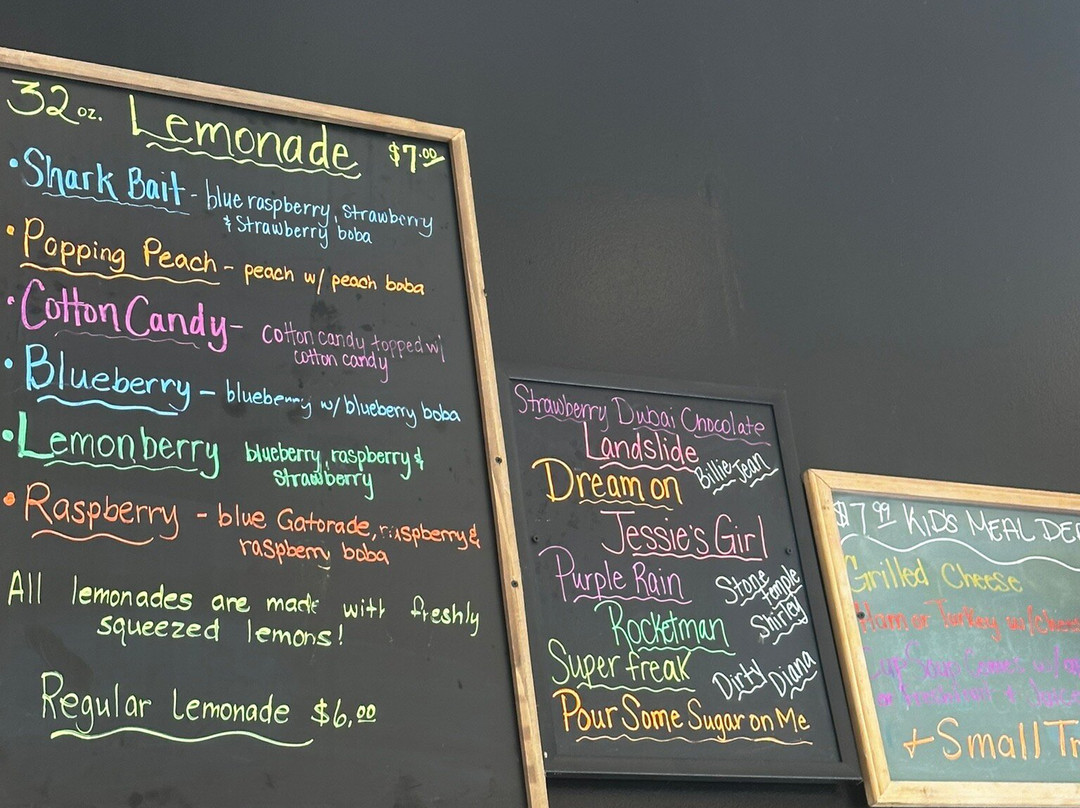 32 oz. Lemonade $7.00
• Shark Bait - blue raspberry, strawberry
& strawberry boba
• Popping Peach - peach w/ peach boba
• Cotton Candy - cotton candy topped w/
cotton candy
• Blueberry - blueberry w/ blueberry boba
• Lemonberry blueberry, raspberry &
strawberry
• Raspberry - blue Gatorade, raspberry &
raspberry boba
All lemonades are made with freshly
squeezed lemons!
Regular Lemonade $6.00
Strawberry Dubai Chocolate
Landslide
Billie Jean
Dream on
Jessie's Girl
Purple Rain
Stone Temple
Shirley
Rocketman
Super freak
Dirty Diana
Pour Some Sugar on Me
$7.99 KID'S MEAL
Grilled Cheese
Ham or Turkey w/
+ Small